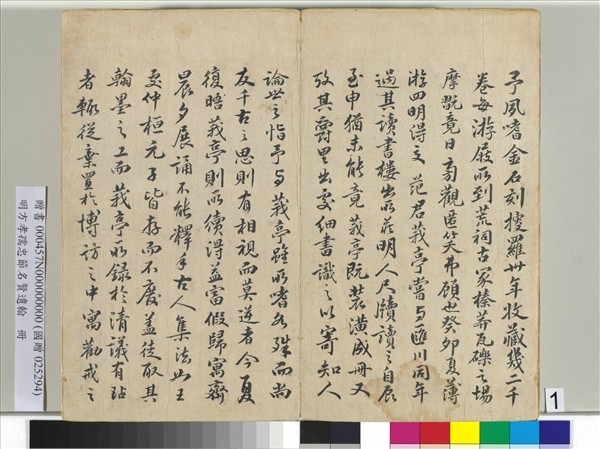 予夙嗜金石刻搜羅卅年收藏幾二千
卷每游屐所到荒祠古冢榛莽瓦礫之場
摩翫竟日旁觀匿笑弗顧也癸卯夏薄
游四明得交范君莪亭嘗與匯川同年
過其讀書樓出所藏明人尺牘讀之自辰
至申猶未能竟莪亭既裝潢成冊又
攷其爵里出處細書識之以寄知人
論世之恉予與莪亭雖所嗜各殊而尚
友千古之思則有相視而莫逆者今夏
復晤莪亭則所續得益富假歸寓齋
晨夕展誦不能釋手古人集法書王
奐仲桓元子皆存而不廢蓋徒取其
翰墨之工而莪亭所錄於清議有玷
者輒從棄置於博訪之中寓勸戒之
贈書 000457N00000000 (國贈 025294)
明方孝孺忠節名賢遺翰 冊
1